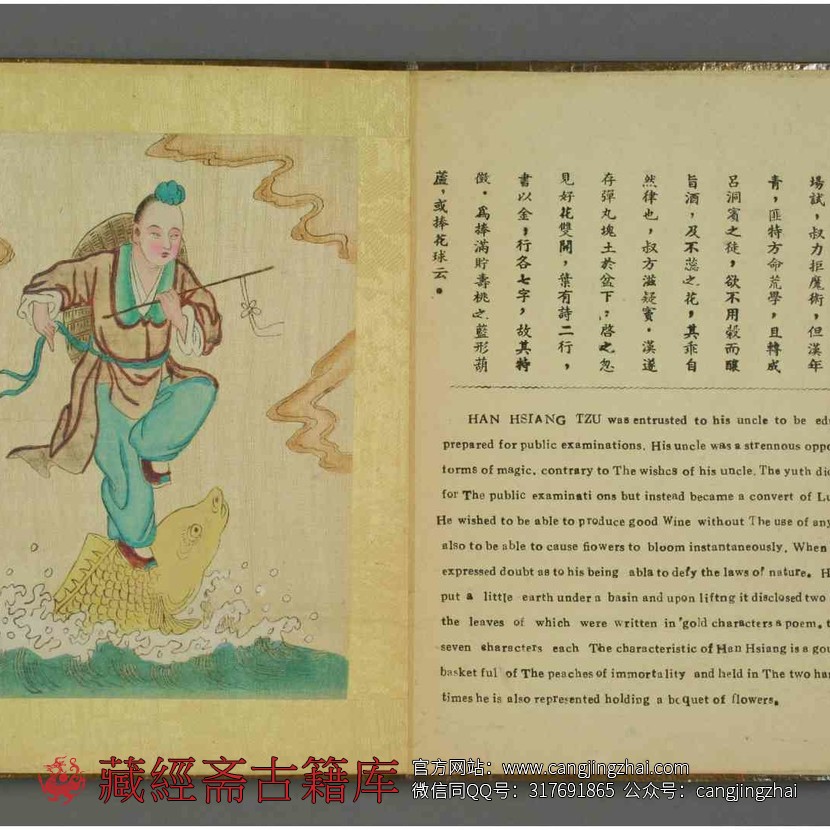 場試，叔力拒魔術，但漢年
青，匪特方命荒學，且轉成
呂洞賓之徒，欲不用穀而釀
旨酒，及不蕊之花，其乖自
然律也，叔方滋疑竇．漢遂
存彈丸塊土於盆下；啓之忽
見好花雙開，葉有詩二行，
書以金，行各七字，故其特
徵．爲捧滿貯壽桃之藍形葫
蘆，或捧花球云．
HAN HSIANG TZU was entrusted to his uncle to be edu
prepared for public examinations. His uncle was a strennous oppo
torms of magic. contrary to The wishcs of his uncle. The yuth did
for The public examinati ons but instead became a convert of Lu
He wished to be able to produce good Wine without The use of any
also to be able to cause fiowers to bloom instantaneously. When
expressed doubt as to his being abla to defy the laws of nature. H
put a little earth under a basin and upon liftng it disclosed two
the leaves of which were written in 'gold characters a poem. t
seven sharacters each The characteristic of Han Hsiang is a gou
basket ful of The peaches of immortality and held in The two han
times he is also represented holding a bcquet of flowers.
藏經斋古籍库
官方网站：www.cangjingzhai.com
微信同QQ号：317691865 公众号：cangjingzhai